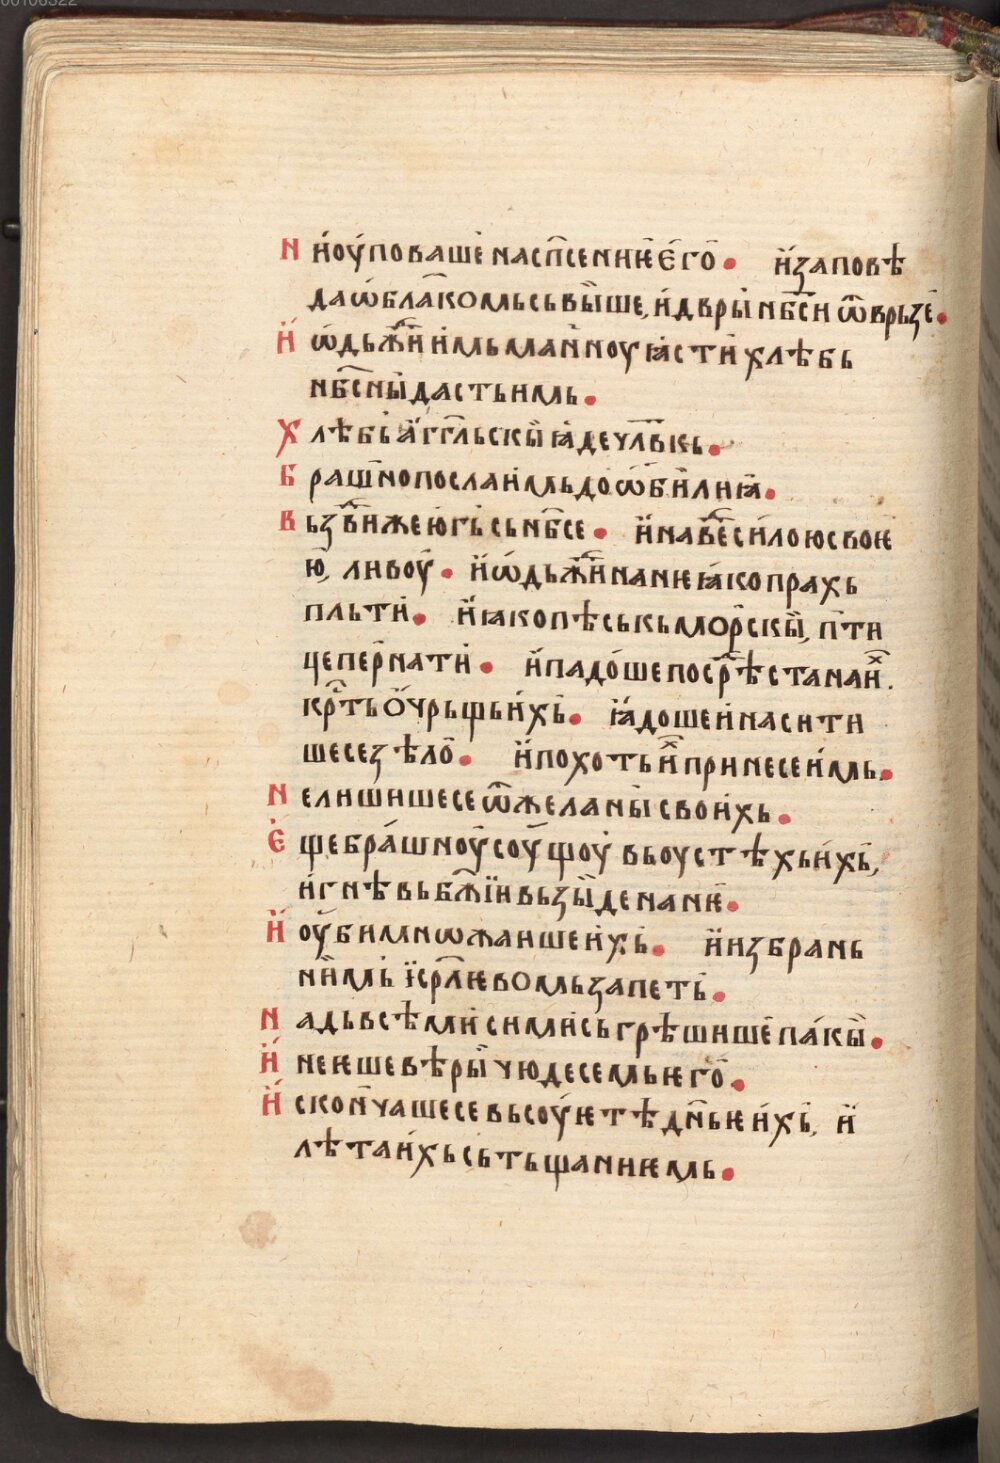 00106322
Н и҆оу҆поваше насп҃сениѥ е҆го҆ • и҆заповѣ
даѡ҆блакѡмь съвыше, и҆двры нб҃си ѿврьзе •
И҆ ѡ҆дьжди и҆мь маннѹ ꙗсти хлѣбь
нб҃сны дасть имь •
Х лѣбь а҆гг҃льскы ꙗде чл҃вкь •
Б рашно посла имь до ѡ҆билиꙗ •
В ьздвиже югь сь нб҃се • и҆наведе силою своѥ
ю, ливоу • и҆ѡ҆дьжди нанѥ ꙗко прахь
пльти • и҆ꙗко пѣськь морскы, пти
це пернати • и҆падоше посрѣ стана их .
крть ѻ҆чрьщьи҆хь • ꙗдоше и҆насити
ше се зѣло • и҆похоть их принесе и҆мь •
Н елишише се ѿжеланы своихь •
Е҆ ще брашноу соущоу вьоустѣхь и҆хь,
и҆гнѣвь бж҃їи вьзыде нанѥ •
И҆ оу҆би мнѡжаише и҆хь • и҆избрань
нимь ї҆ср҃лѥвомь запеть •
Н адь всѣми сими сьгрѣшише пакы •
И҆ не ѥше вѣры чюдесемь ѥго •
И҆ скончаше се вьсоуѥтѣ дн҃ьѥ и҆хь, и҆
лѣта и҆хь сь тьщаниѥмь •